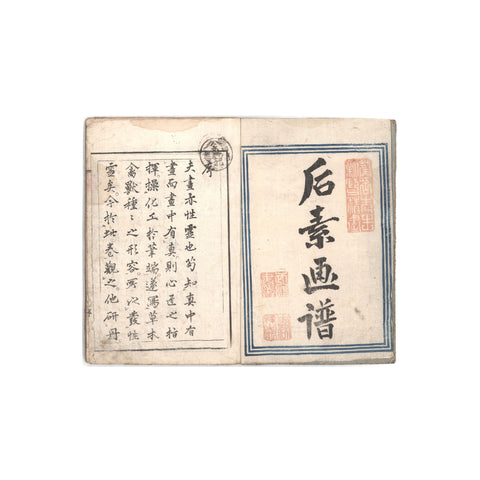 后素画譜
序
夫畫亦性靈也苟知真中有
畫而畫中有真則心匠之枯
操化工於筆端遂寫草木
禽獸種〻之形容所以發性
靈矣余於此卷觀之他研丹